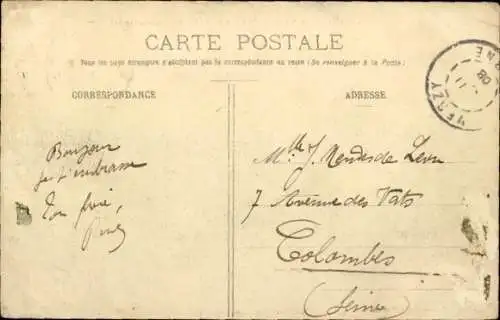 CARTE POSTALE
Tous les pays étrangers n'acceptent pas la correspondance au recto (Se renseigner à la Poste)
CORRESPONDANCE
ADRESSE
Bonjour
je t'embrasse
Ton frère,
Mlle J. Mendes de Leon
7 Avenue des Vats
Colombes
(Seine)
MERZY
08